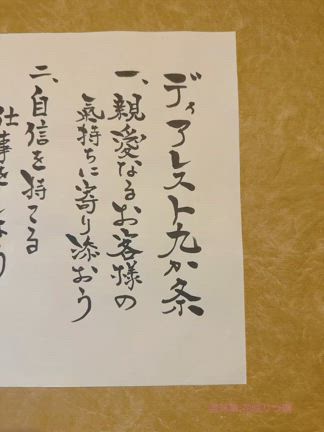 ディアレスト九か条
一、親愛なるお客様の
氣持ちに寄り添おう
二、自信を持てる
仕事をしよう